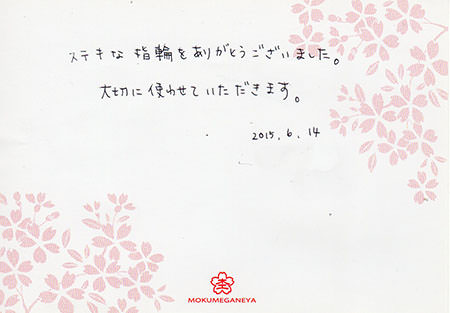 ステキな指輪をありがとうございました。
大切に使わせていただきます。
2015.6.14
MOKUMEGANEYA